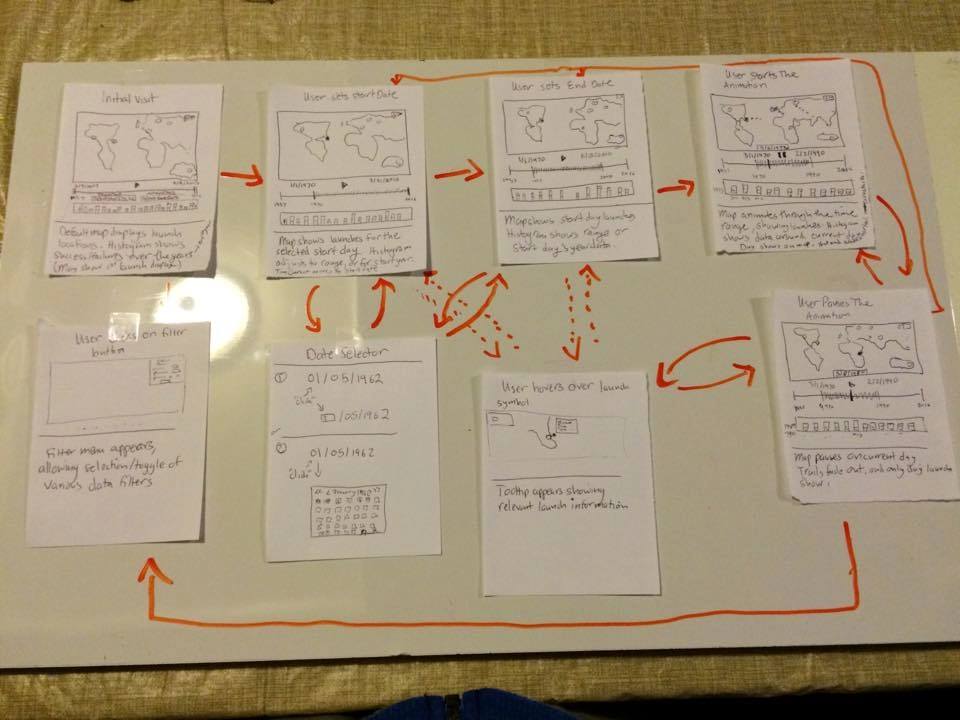 Initial Visit
Default map displays launch
locations. Histogram shows
success/failures over the years
(Map show on launch display)
User sets start Date
1/1/1970
1957
1970
Map shows launches for the
selected start day. Histogram
adjusts to range, or for start year.
User sets End Date
1/1/1970
Map shows start day launches
Histogram shows range or
Start day's year data.
User Starts The
Animation
3/1/1970
2/2/1990
1970
1990
Map animates through the time
range, showing launches. Histogram
shows data around current day
Day shows on map.
User clicks on filter
button
Filter menu appears,
allowing selection/toggle of
various data filters
Date Selector
1
01/05/1962
"click"
/05/1962
2
01/05/1962
"click"
User hovers over launch
symbol
Tooltip appears showing
relevant launch information
User Pauses The
Animation
2/2/1990
1970
1990
Map pauses on current day
Trails fade out, and only day launch
show